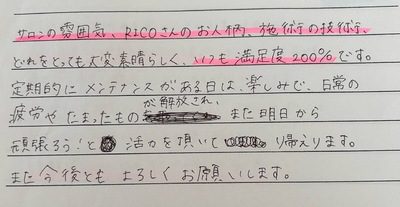 サロンの雰囲気、RICOさんのお人柄、施術行の技術行、
どれをとっても大変素晴らしく、いつも満足度200%です。
定期的にメンテナンスがある日は、楽しみで、日常の
疲労やたまったものが解放され、また明日から
頑張ろう!と活力を頂いて帰えります。
また今後ともよろしくお願いします。